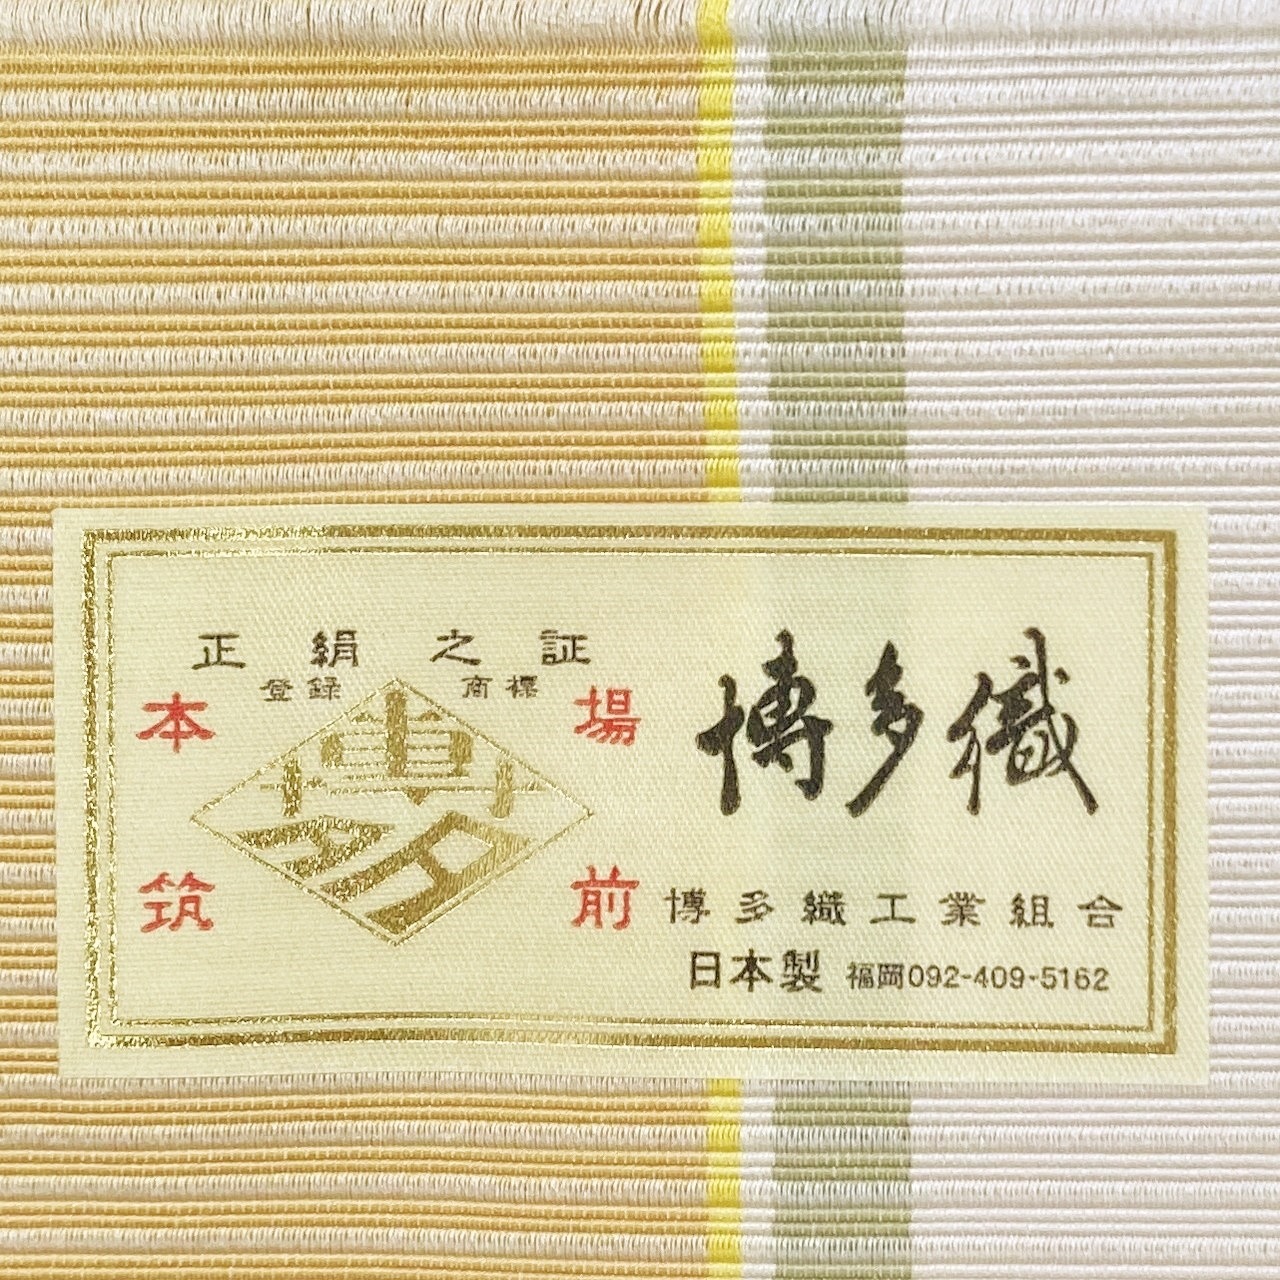 正絹之証
登録 商標
本場
筑前
博多
博多織
博多織工業組合
日本製 福岡092-409-5162